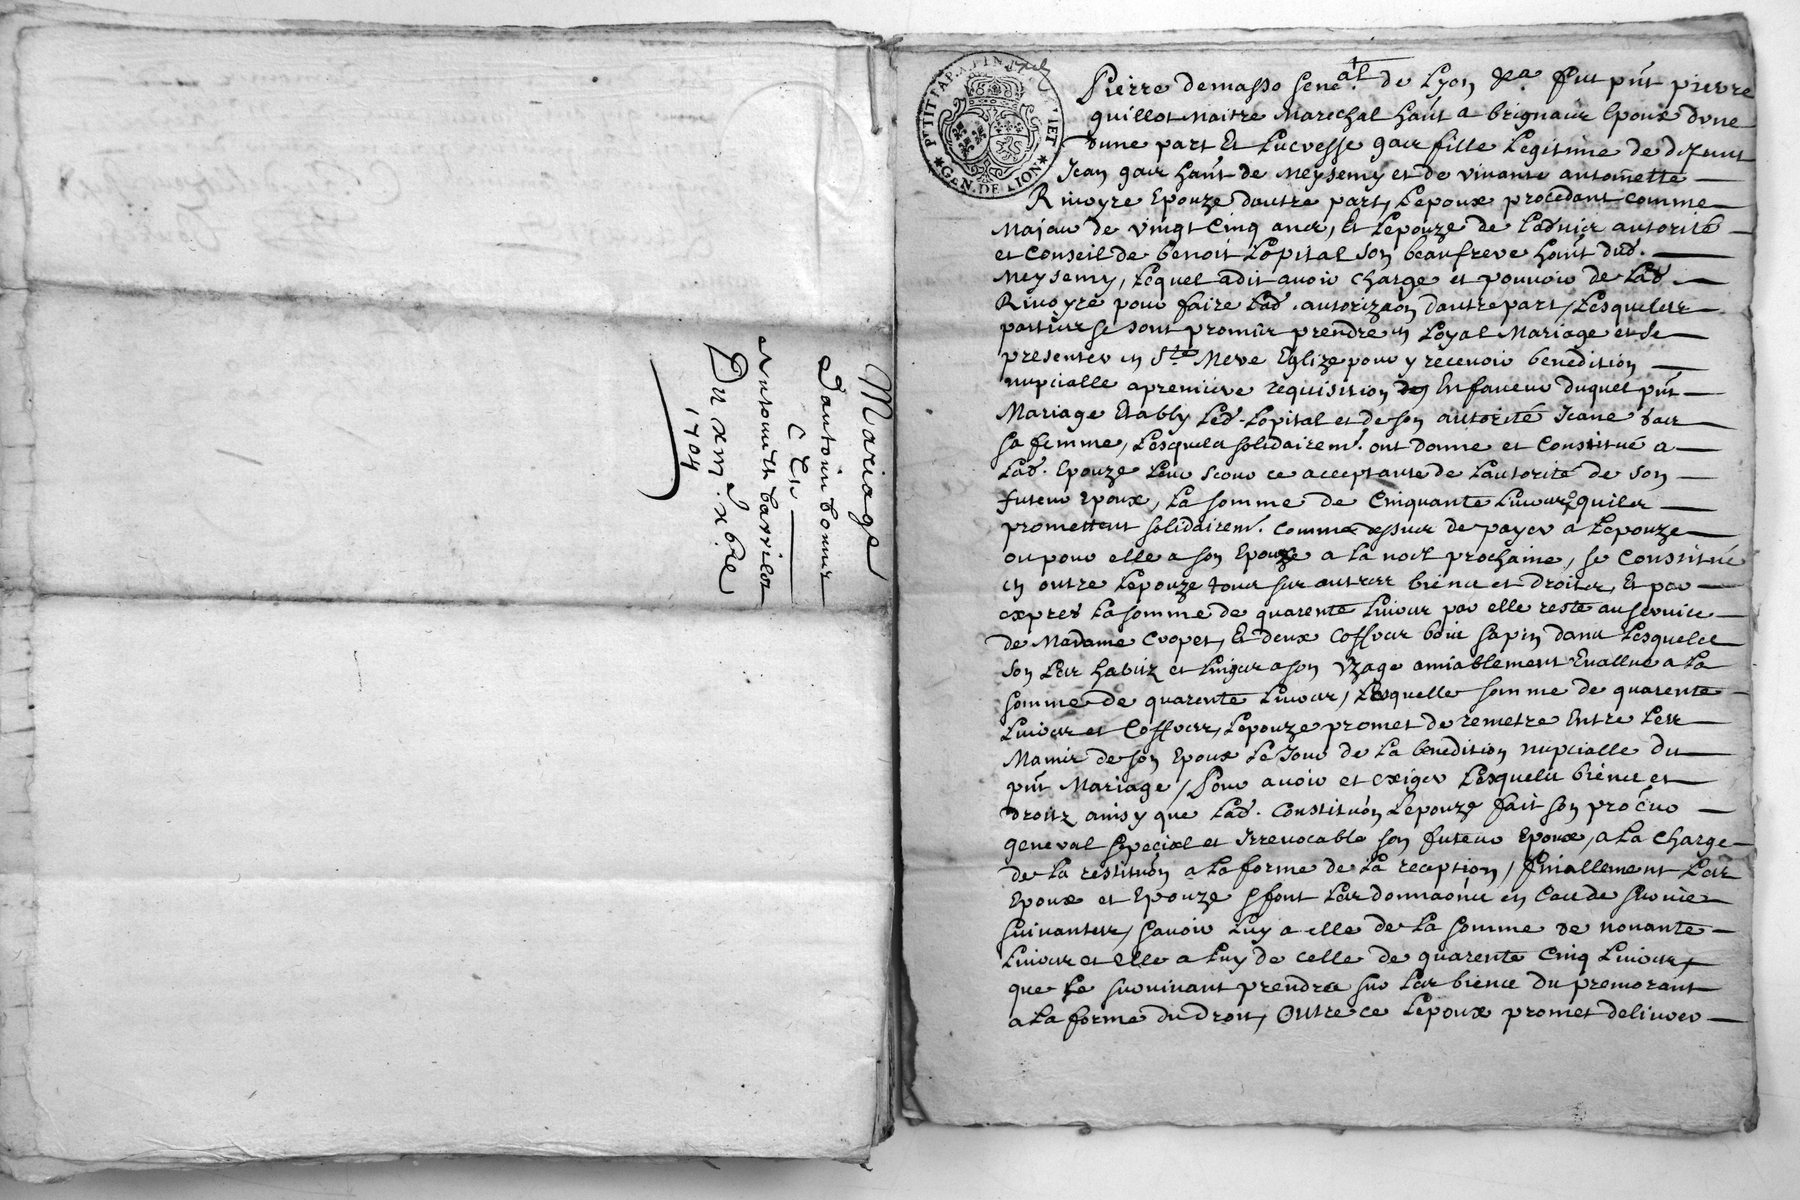 Mariage
Dantoine bonnir
ETt
Antoinette barrilot
Du xiiij. xbre
1704
PETIT PAP.
GEN. DE LION
Pierre demasso sene.al de Lyon fut pnt pierre
guillot maitre Marechal hant a brignair Epoux dune
dune part Et Lucresse gar fille Legitime de defunt
Jean gar hant de Meysemy et de vivante antoinette
Rivoyre Epouze dautre part, Lepoux procedant comme
Majeur de vingt Cinq ans, Et Lepouze de Ladvis autorité
et Conseil de benoit Lopital son beaufrere hant dud.
Meysemy, Lequel adit avoir charge et pouvoir de Lad.
Rivoyre pour faire Lad. autorizaon dautre part, Lesquelles
parties se sont promis prendre en Loyal Mariage et se
presenter en Ste Mere Eglize pour y recevoir benedition
nupcialle a premiere requisition En faveur duquel pnt
Mariage Etably Led. Lopital et de son autorité Jeane gar
sa femme, Lesquels solidairemt. ont donne et Constitué a
Lad. Epouze Leur seour ce acceptante de Lautorité de son
futeur Epoux, La somme de Cinquante Livres quils
promettent solidairemt. comme dessus de payer a Lepouze
ou pour elle a son Epouze a La noel prochaine, se Constitue
en outre Lepouze tous ses autres biens et droits, Et par
expres La somme de quarente Livres par elle reste au service
de Madame Cropet, Et deux Coffres bois sapin dans Lesquels
son Les habitz et Linges a son Uzage amiablement Evallue a La
somme de quarente Livres, Lesquelle somme de quarente
Livres et Coffres, Lepouze promet de remetre Entre Les
Mains de son Epoux Le Jour de La benedition nupcialle du
pnt Mariage, Pour avoir et exiger Lesquels biens et
droitz ainsy que Lad. Constituon Lepouze fait son procur
general special et Irrevocable son futeur Epoux, a La charge
de La restituon a La forme de La reception, finallement Les
Epoux et Epouze se font Les donnaons en Cas de survie
suivantes, savoir Luy a elle de La somme de nonante
Livres et elle a Luy de celle de quarente Cinq Livres,
que Le survivant prendra sur Les biens du premorant
a La forme du droit, Outre ce Lepoux promet delivrer